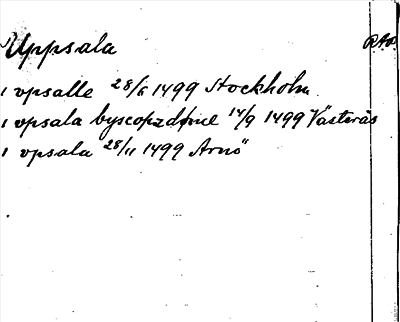 Uppsala RAP.
i vpsalle 28/6 1499 Stockholm
i vpsala byscopzdøme 14/9 1499 Västerås
i vpsala 28/11 1499 Arnö